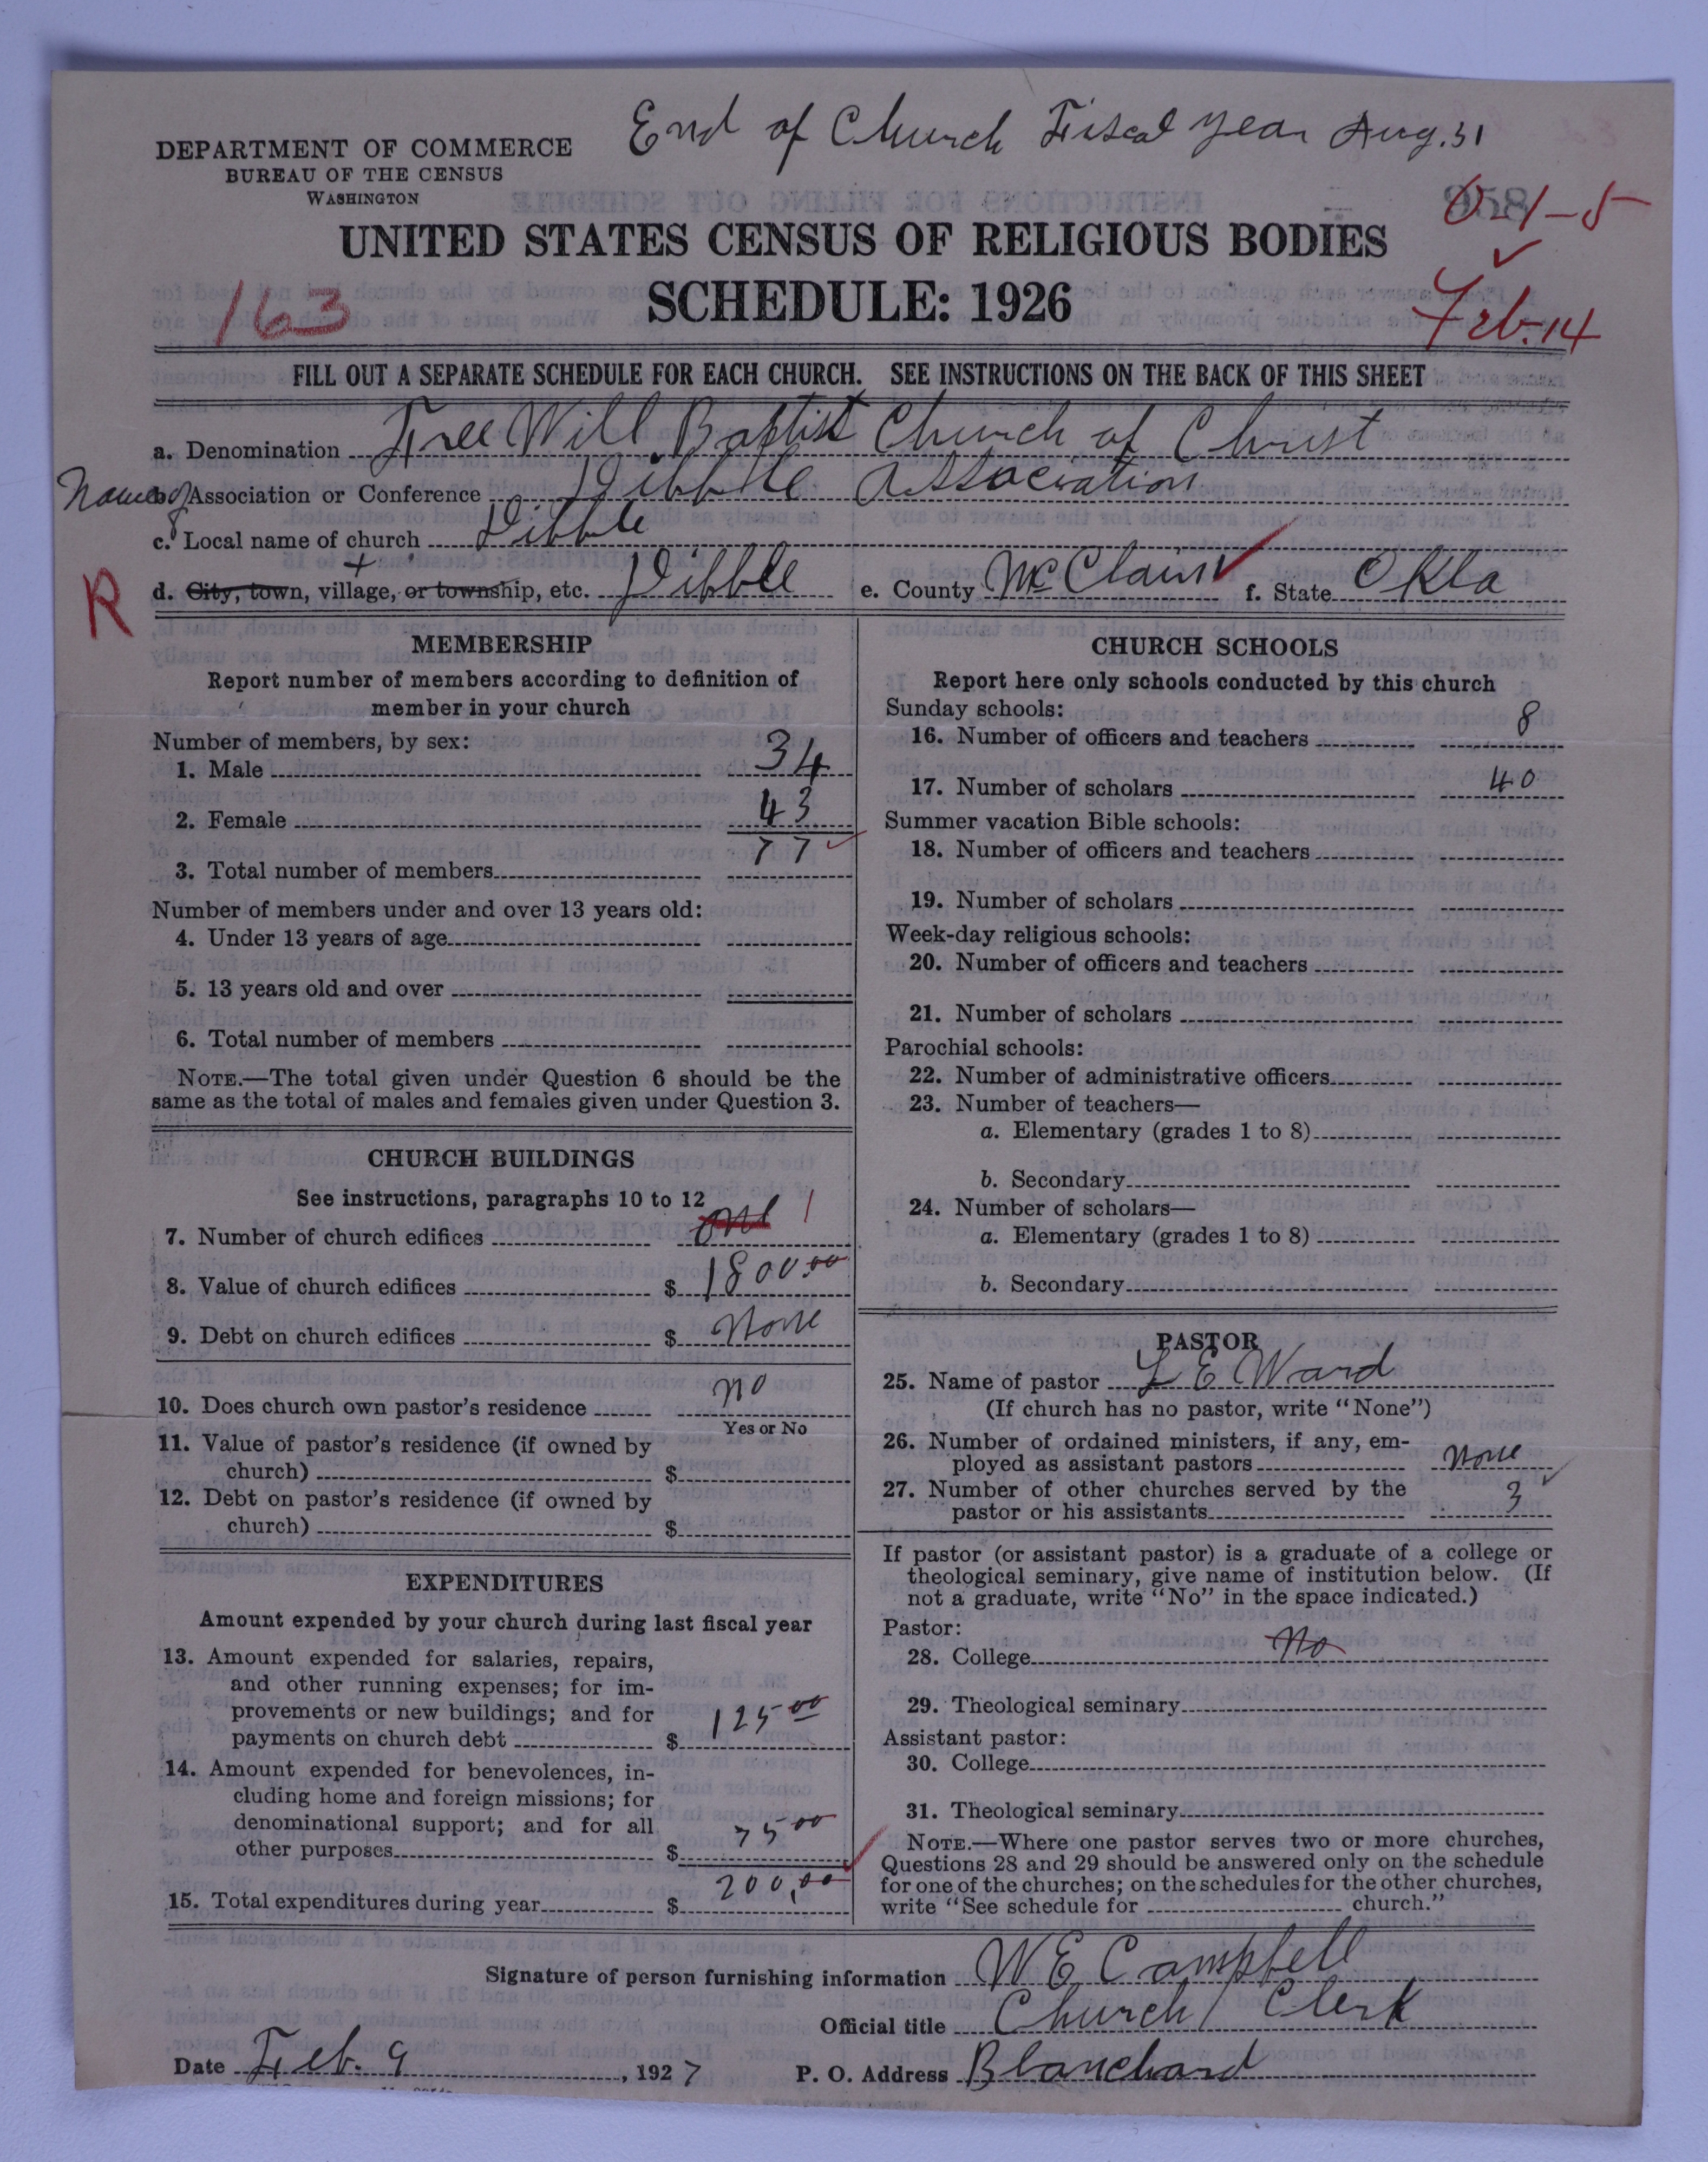 End of Church Fiscal year Aug. 31
DEPARTMENT OF COMMERCE
BUREAU OF THE CENSUS
WASHINGTON
958
0-1-5
UNITED STATES CENSUS OF RELIGIOUS BODIES
SCHEDULE: 1926
163
Feb. 14
FILL OUT A SEPARATE SCHEDULE FOR EACH CHURCH. SEE INSTRUCTIONS ON THE BACK OF THIS SHEET
a. Denomination Free Will Baptist Church of Christ
Name of b. Association or Conference Dibble Association
c. Local name of church Dibble
R
d. City, town, village, or township, etc. Dibble e. County McClain f. State Okla
MEMBERSHIP
Report number of members according to definition of
member in your church
Number of members, by sex:
1. Male 34
2. Female 43
3. Total number of members 77
Number of members under and over 13 years old:
4. Under 13 years of age
5. 13 years old and over
6. Total number of members
NOTE.—The total given under Question 6 should be the
same as the total of males and females given under Question 3.
CHURCH BUILDINGS
See instructions, paragraphs 10 to 12
7. Number of church edifices one 1
8. Value of church edifices $ 1800.00
9. Debt on church edifices $ None
10. Does church own pastor's residence no
Yes or No
11. Value of pastor's residence (if owned by
church) $
12. Debt on pastor's residence (if owned by
church) $
EXPENDITURES
Amount expended by your church during last fiscal year
13. Amount expended for salaries, repairs,
and other running expenses; for im-
provements or new buildings; and for
payments on church debt $ 125 00
14. Amount expended for benevolences, in-
cluding home and foreign missions; for
denominational support; and for all
other purposes $ 75 00
15. Total expenditures during year $ 200.00
CHURCH SCHOOLS
Report here only schools conducted by this church
Sunday schools:
16. Number of officers and teachers 8
17. Number of scholars 40
Summer vacation Bible schools:
18. Number of officers and teachers
19. Number of scholars
Week-day religious schools:
20. Number of officers and teachers
21. Number of scholars
Parochial schools:
22. Number of administrative officers
23. Number of teachers—
a. Elementary (grades 1 to 8)
b. Secondary
24. Number of scholars—
a. Elementary (grades 1 to 8)
b. Secondary
PASTOR
25. Name of pastor L E Ward
(If church has no pastor, write "None")
26. Number of ordained ministers, if any, em-
ployed as assistant pastors None
27. Number of other churches served by the
pastor or his assistants 3
If pastor (or assistant pastor) is a graduate of a college or
theological seminary, give name of institution below. (If
not a graduate, write "No" in the space indicated.)
Pastor:
28. College No
29. Theological seminary
Assistant pastor:
30. College
31. Theological seminary
NOTE.—Where one pastor serves two or more churches,
Questions 28 and 29 should be answered only on the schedule
for one of the churches; on the schedules for the other churches,
write "See schedule for church."
Signature of person furnishing information W E Campbell
Official title Church Clerk
Date Feb. 9, 1927 P. O. Address Blanchard